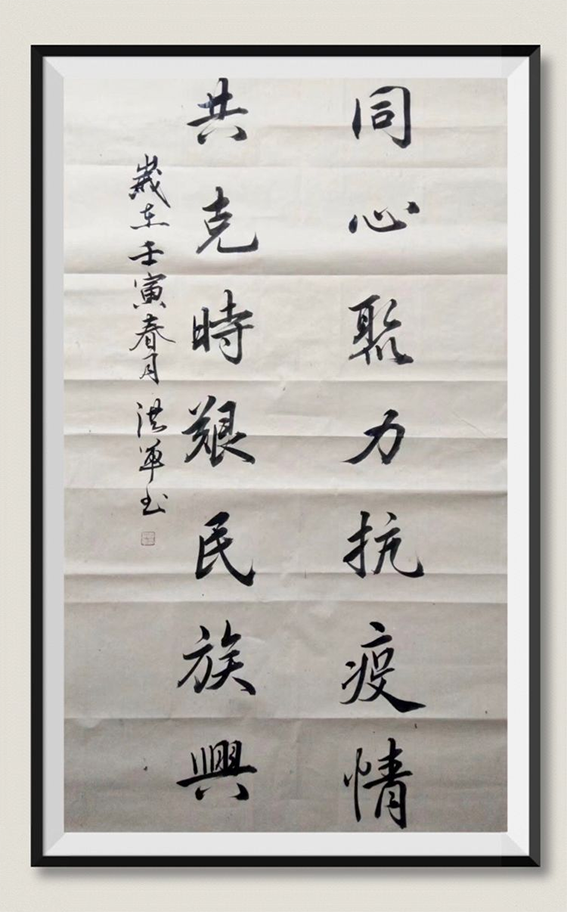 同心聚力抗疫情
共克時艱民族興
歲在壬寅春月洪軍书